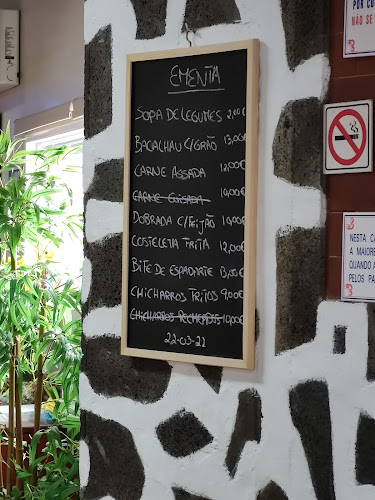 EMENTA
SOPA DE LEGUMES 2,00€
BACALHAU C/GRÃO 13,00€
CARNE ASSADA 12,00€
CARNE GUISADA 10,00€
DOBRADA C/FEIJÃO 10,00€
COSTELETA FRITA 12,00€
BIFE DE ESPADARTE 13,00€
CHICHARROS FRITOS 9,00€
CHICHARROS RECHEADOS 10,00€
22-03-22
POR
NÃO SE
NESTA CA
A MAIORE
QUANDO A
PELOS PA